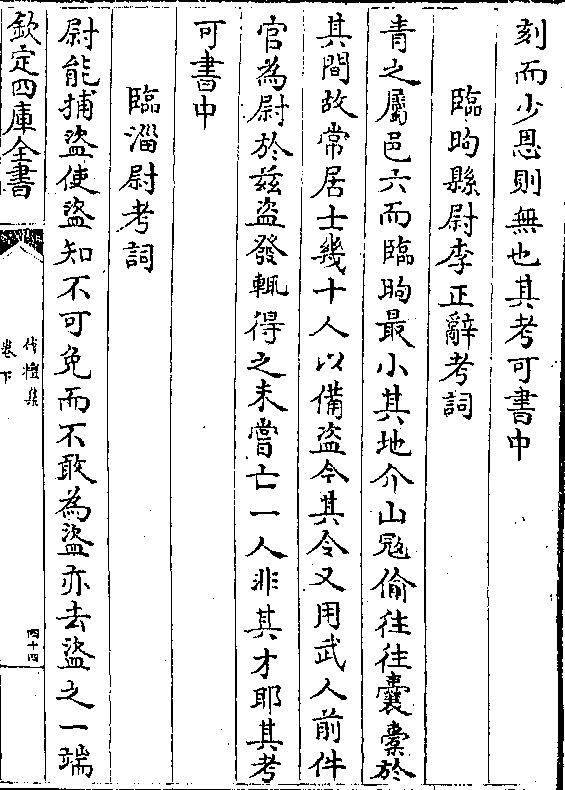 刻而少恩則無也其考可書中
臨朐縣尉李正辭考詞
青之屬邑六而臨朐最小其地介山冦偷往往囊橐於
其間故常居士幾十人以備盗今其令又用武人前件
官為尉於兹盗發輒得之未嘗亡一人非其才耶其考
可書中
臨淄尉考詞
尉能捕盜使盜知不可免而不敢為盜亦去盜之一端
欽定四庫全書
伐檀集
卷下
四十四